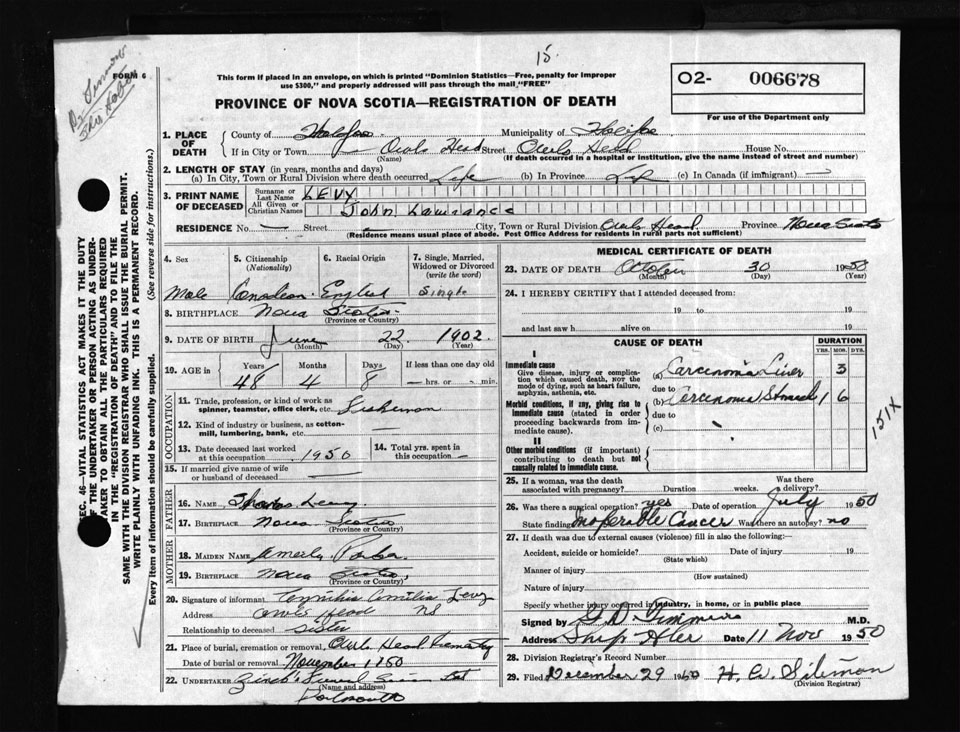 15.
Dr Simmons
Ship Harbor
FORM 6
This form if placed in an envelope, on which is printed "Dominion Statistics—Free, penalty for improper
use $300," and properly addressed will pass through the mail "FREE"
PROVINCE OF NOVA SCOTIA—REGISTRATION OF DEATH
O2- 006678
For use of the Department only
SEC. 46—VITAL STATISTICS ACT MAKES IT THE DUTY
OF THE UNDERTAKER OR PERSON ACTING AS UNDER-
TAKER TO OBTAIN ALL THE PARTICULARS REQUIRED
IN THE "REGISTRATION OF DEATH" AND TO FILE THE
SAME WITH THE DIVISION REGISTRAR WHO SHALL ISSUE THE BURIAL PERMIT.
WRITE PLAINLY WITH UNFADING INK. THIS IS A PERMANENT RECORD.
(See reverse side for instructions.)
Every item of information should be carefully supplied.
1. PLACE OF DEATH
County of Halifax Municipality of Halifax
If in City or Town Owls Head Street Owls Head House No.
(Name) (If death occurred in a hospital or institution, give the name instead of street and number)
2. LENGTH OF STAY (in years, months and days)
(a) In City, Town or Rural Division where death occurred Life (b) In Province Life (c) In Canada (if immigrant) —
3. PRINT NAME OF DECEASED
Surname or Last Name LEVY
All Given or Christian Names John Lawrance
RESIDENCE No. — Street — City, Town or Rural Division Owls Head Province Nova Scotia
(Residence means usual place of abode. Post Office Address for residents in rural parts not sufficient)
4. Sex Male
5. Citizenship (Nationality) Canadian
6. Racial Origin English
7. Single, Married, Widowed or Divorced (write the word) Single
8. BIRTHPLACE Nova Scotia
(Province or Country)
9. DATE OF BIRTH June 22 1902
(Month) (Day) (Year)
10. AGE in Years Months Days If less than one day old
48 4 8 — hrs. or — min.
OCCUPATION
11. Trade, profession, or kind of work as
spinner, teamster, office clerk, etc. Fisherman
12. Kind of industry or business, as cotton-
mill, lumbering, bank, etc. —
13. Date deceased last worked at this occupation 1950
14. Total yrs. spent in this occupation —
15. If married give name of wife
or husband of deceased —
FATHER
16. NAME Levy
17. BIRTHPLACE Nova Scotia
(Province or Country)
MOTHER
18. MAIDEN NAME
19. BIRTHPLACE Nova Scotia
(Province or Country)
20. Signature of informant Cynthia Levy
Address Owls Head NS
Relationship to deceased Sister
21. Place of burial, cremation or removal Owls Head Cemetery
Date of burial or removal November 1 1950
22. UNDERTAKER Zinck's Funeral
(Name and address)
Dartmouth
MEDICAL CERTIFICATE OF DEATH
23. DATE OF DEATH October 30 1950
(Month) (Day) (Year)
24. I HEREBY CERTIFY that I attended deceased from:
19 to 19
and last saw h alive on 19
CAUSE OF DEATH
DURATION
YRS. MOS. DYS.
I
Immediate cause
Give disease, injury or compli-
cation which caused death, NOT the
mode of dying, such as heart failure,
asphyxia, asthenia, etc.
(a) Carcinoma Liver 3
due to
Morbid conditions, if any, giving rise to
immediate cause (stated in order
proceeding backwards from im-
mediate cause).
(b) Carcinoma Stomach 1 6
due to
(c)
151X
II
Other morbid conditions (if important)
contributing to death but not
causally related to immediate cause.
25. If a woman, was the death
associated with pregnancy? Duration weeks. Was there a delivery?
26. Was there a surgical operation? yes Date of operation July 1950
State findings Inoperable Cancer Was there an autopsy? no
27. If death was due to external causes (violence) fill in also the following:—
Accident, suicide or homicide? Date of injury 19
(State which)
Manner of injury
(How sustained)
Nature of injury
Specify whether injury occurred in industry, in home, or in public place
Signed by M.D.
Address Ship Hbr Date 11 Nov 1950
28. Division Registrar's Record Number
29. Filed December 29 1950 H. W. Sileman
(Division Registrar)